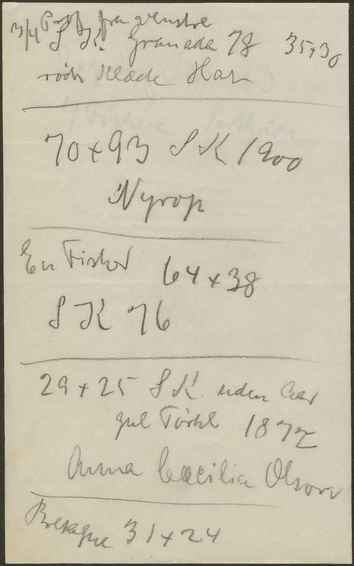 3/4 Prof fra venstre
S K Granada 78 35,30
rødt Klæde Hat
70 x 93 S K 1900
Nyrop
En Fisker 64 x 38
S K 76
29 x 25 S K uden Aar
gul Törkl 1872
Anna Cæcilia Olsen
Bretagne 31 x 24